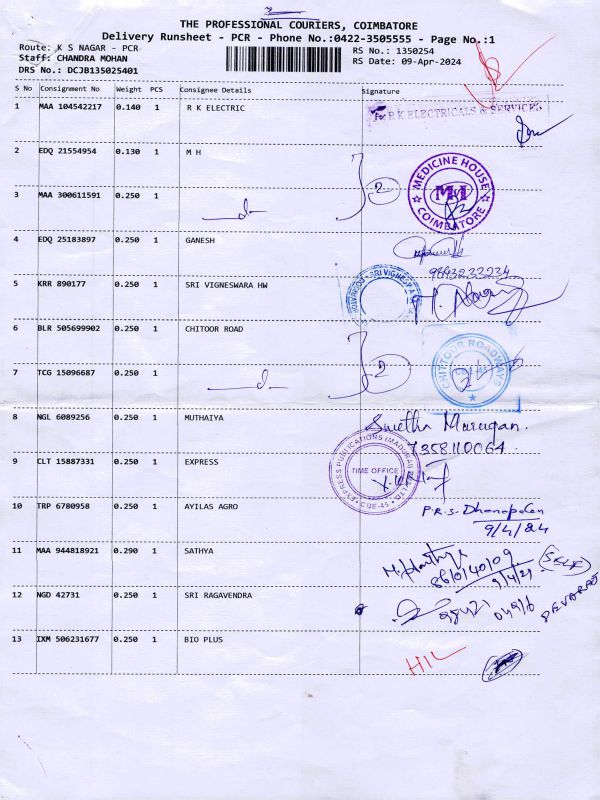 THE PROFESSIONAL COURIERS, COIMBATORE
Delivery Runsheet - PCR - Phone No.:0422-3505555 - Page No.:1
Route: K S NAGAR - PCR
RS No.: 1350254
Staff: CHANDRA MOHAN
RS Date: 09-Apr-2024
DRS No.: DCJB135025401
S No Consignment No Weight PCS Consignee Details Signature
1 MAA 104542217 0.140 1 R K ELECTRIC
For R K ELECTRICALS & SERVICES
2 EDQ 21554954 0.130 1 M H
2
MEDICINE HOUSE
COIMBATORE
3 MAA 300611591 0.250 1
4 EDQ 25183897 0.250 1 GANESH
5 KRR 890177 0.250 1 SRI VIGNESWARA HW
6 BLR 505699902 0.250 1 CHITOOR ROAD
2
CHITTOOR ROADWAYS
CBE-45
7 TCG 15096687 0.250 1
8 NGL 6089256 0.250 1 MUTHAIYA
Swetha Murugan.
7358110064
9 CLT 15887331 0.250 1 EXPRESS
EXPRESS PUBLICATIONS (MADURAI) PVT LTD
TIME OFFICE
CBE-45
10 TRP 6780958 0.250 1 AYILAS AGRO
P.R.S. Dhanapalan
9/4/24
11 MAA 944818921 0.290 1 SATHYA
(SELF)
12 NGD 42731 0.250 1 SRI RAGAVENDRA
DEVARAJ
13 IXM 506231677 0.250 1 BIO PLUS